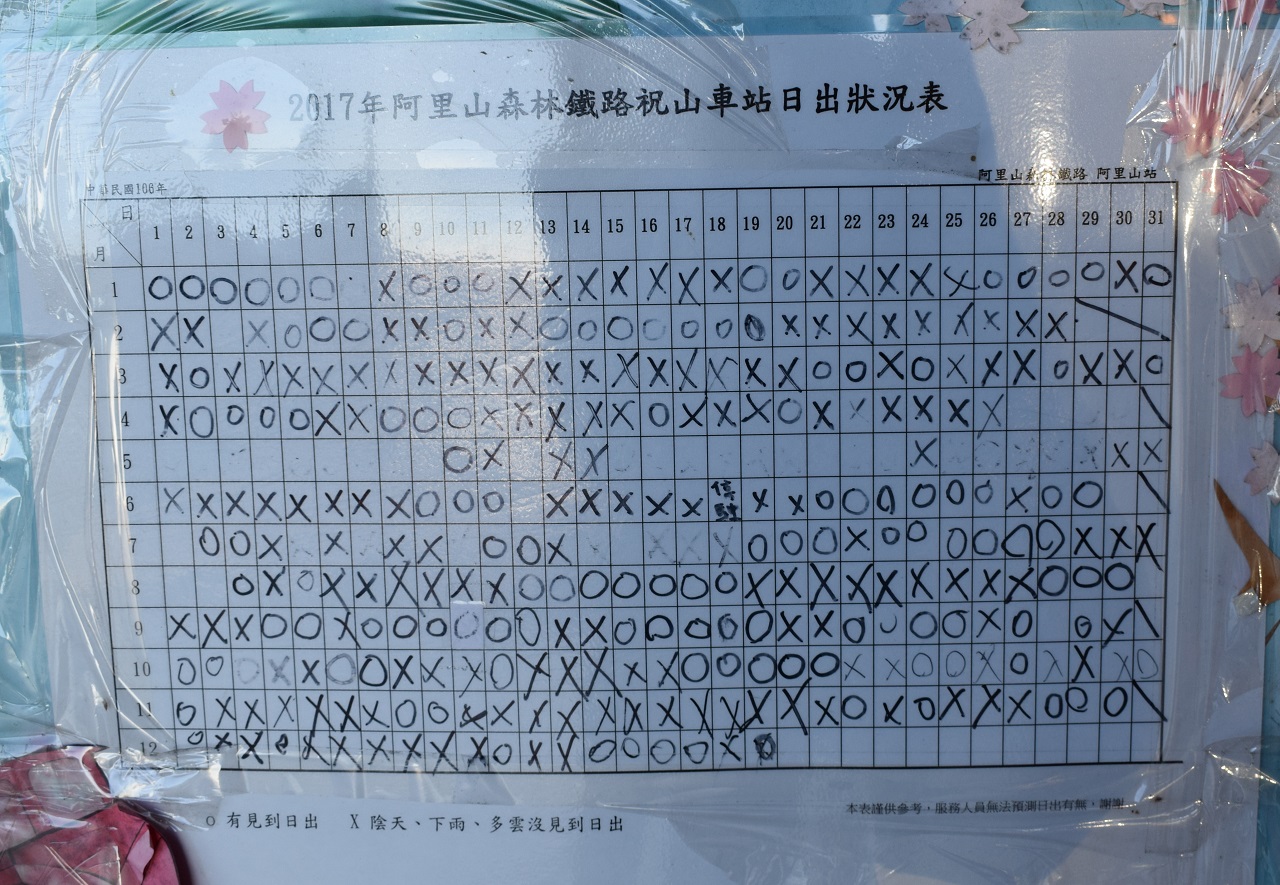 2017年阿里山森林鐵路祝山車站日出狀況表
中華民國106年
阿里山森林鐵路 阿里山站
日
月
1 2 3 4 5 6 7 8 9 10 11 12 13 14 15 16 17 18 19 20 21 22 23 24 25 26 27 28 29 30 31
1 O O O O O O X O O O X X X X X X X O O X X X X X O O O O X O
2 X X X O O O X X O X X O O O O O O O X X X X X X X X X
3 X O X X X X X X X X X X X X X X X X X X O O X O X X X O X X O
4 X O O O O X X O O O X X X X X O X X X O X X X X X X
5 O X X X X X X
6 X X X X X X X X O O O X X X X X 停駛 X X O O O O O O X O O
7 O O X X X X O O X X X X O O O X O O O O O O X X X
8 O X O X X X X X X O O O O O O O X X X X X X X X X O O O
9 X X X O O X O O O O O O X X O O O O O X X O O O O X O O X
10 O O O X X O O X X X O X X X X X O O O O O X X O O X O X X X O
11 O X X X X X X O O X X X X X X X X X X X O X O X X X O O O
12 O X X O X X X X X X O X X O O O O X O
O 有見到日出 X 陰天、下雨、多雲沒見到日出
本表謹供參考，服務人員無法預測日出有無，謝謝